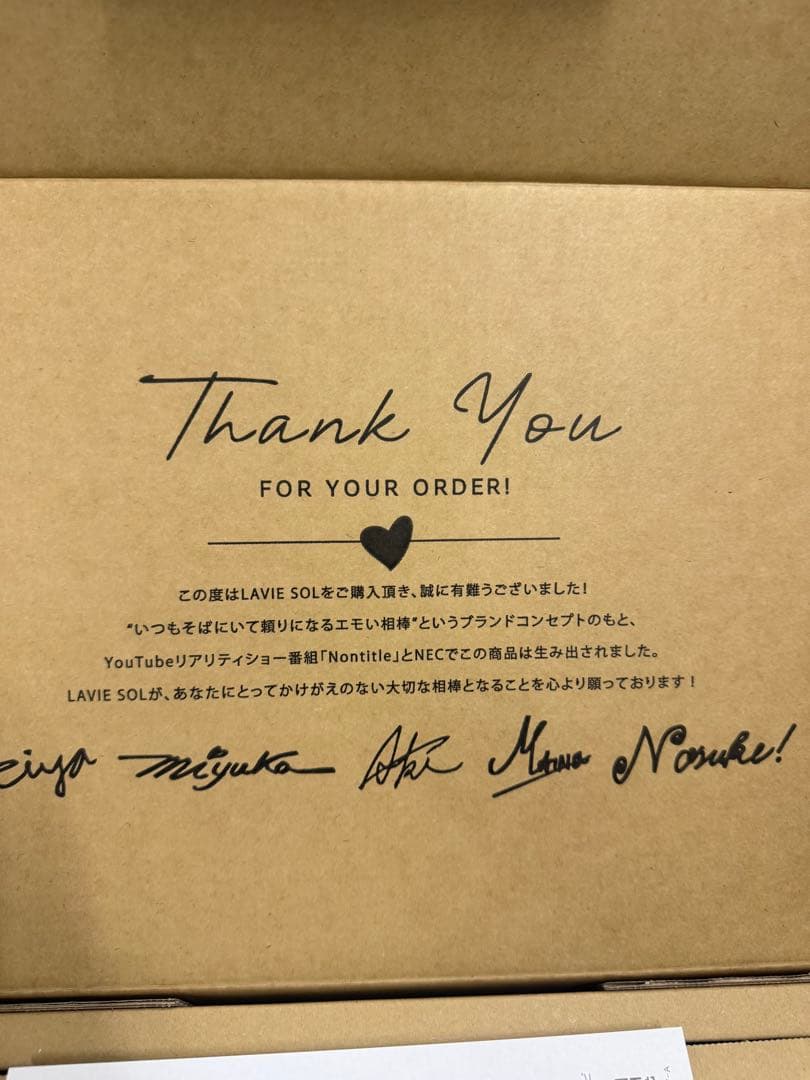 Thank You
FOR YOUR ORDER!
この度はLAVIE SOLをご購入頂き、誠に有難うございました!
“いつもそばにいて頼りになるエモい相棒”というブランドコンセプトのもと、
YouTubeリアリティショー番組「Nontitle」とNECでこの商品は生み出されました。
LAVIE SOLが、あなたにとってかけがえのない大切な相棒となることを心より願っております!
miyuka Aki Nosuke!